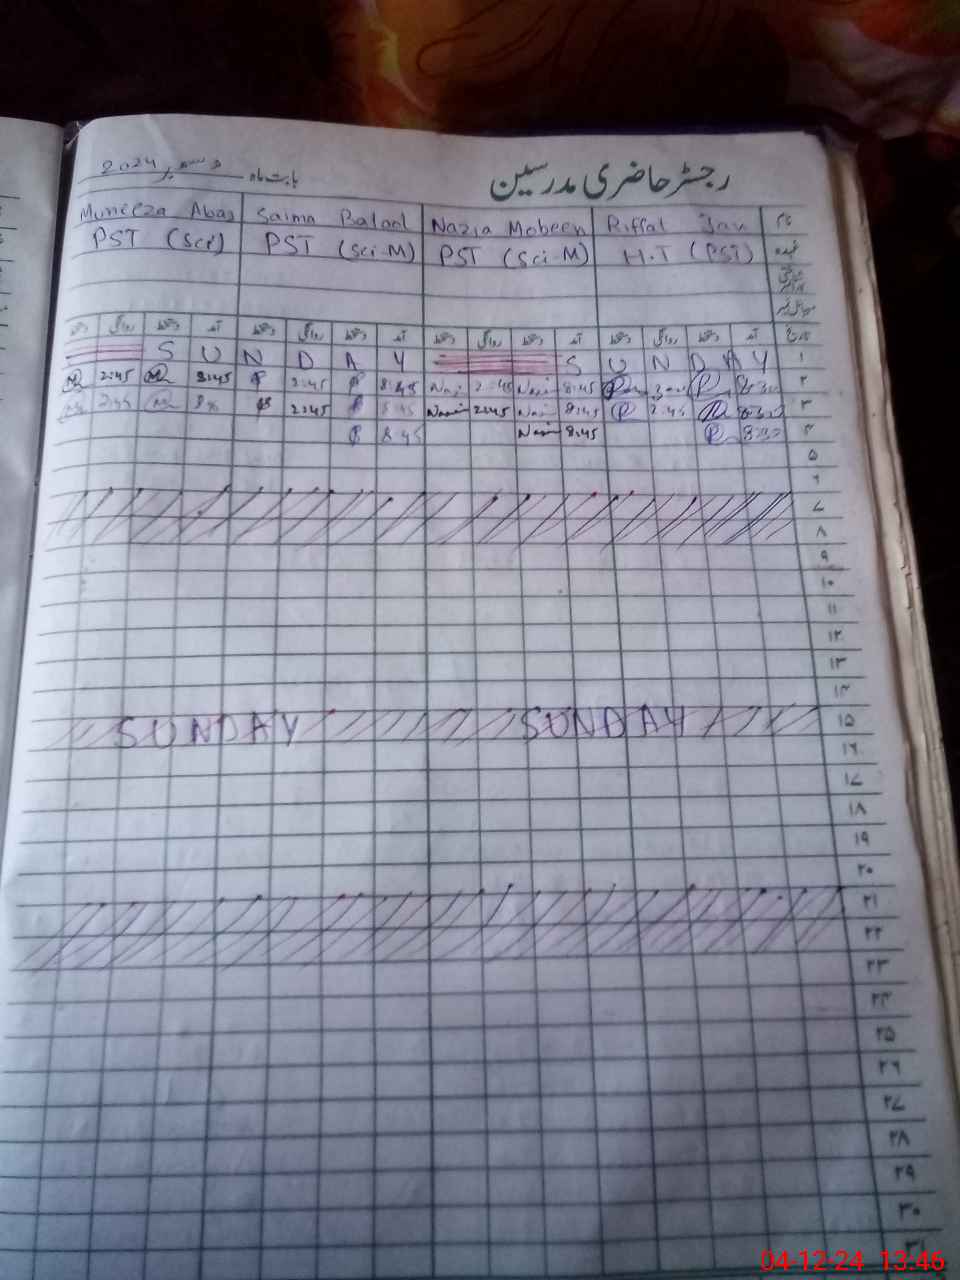 رجسٹر حاضری مدرسین
بابت ماہ دسمبر 2024
نام Riffat Nazia Mobeen Saima Muneeza Abas
عہدہ H.T (PST) PST (Sci-M) PST (Sci-M) PST (Sci)
تاریخ آمد دستخط روانگی دستخط آمد دستخط روانگی دستخط آمد دستخط روانگی دستخط آمد دستخط روانگی دستخط
۱ SUNDAY SUNDAY
۲ 8:30 3:00 8:45 2:45 8:45 2:45 8:45 2:45
۳ 8:30 2:45 8:45 2:45 8:45 2:45
۴ 8:30 8:45 8:45
۵
۶
۷
۸
۹
۱۰
۱۱
۱۲
۱۳
۱۴
۱۵ SUNDAY SUNDAY
۱۶
۱۷
۱۸
۱۹
۲۰
۲۱
۲۲
۲۳
۲۴
۲۵
۲۶
۲۷
۲۸
۲۹
۳۰
۳۱
04-12-24 13:46